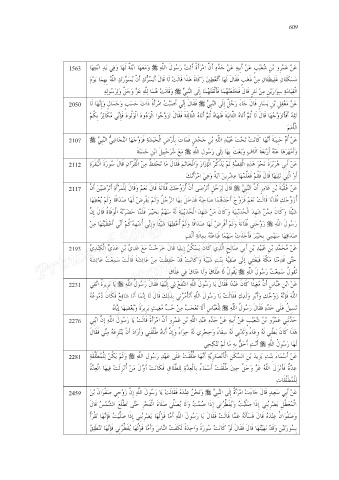 609
1563 عَنْ عَمْرِو بْنِ شُعَيْبٍ عَنْ أَبِيهِ عَنْ جَدِّهِ أَنَّ امْرَأَةً أَتَتْ رَسُولَ اللَّهِ ﷺ وَمَعَهَا ابْنَةٌ لَهَا وَفِي يَدِ ابْنَتِهَا
مَسَكَتَانِ غَلِيظَتَانِ مِنْ ذَهَبٍ فَقَالَ لَهَا أَتُعْطِينَ زَكَاةَ هَذَا قَالَتْ لَا قَالَ أَيَسُرُّكِ أَنْ يُسَوِّرَكِ اللَّهُ بِهِمَا يَوْمَ
الْقِيَامَةِ سِوَارَيْنِ مِنْ نَارٍ قَالَ فَخَلَعَتْهُمَا فَأَلْقَتْهُمَا إِلَى النَّبِيِّ ﷺ وَقَالَتْ هُمَا لِلَّهِ عَزَّ وَجَلَّ وَلِرَسُولِهِ
2050 عَنْ مَعْقِلِ بْنِ يَسَارٍ قَالَ جَاءَ رَجُلٌ إِلَى النَّبِيِّ ﷺ فَقَالَ إِنِّي أَصَبْتُ امْرَأَةً ذَاتَ حَسَبٍ وَجَمَالٍ وَإِنَّهَا لَا
تَلِدُ أَفَأَتَزَوَّجُهَا قَالَ لَا ثُمَّ أَتَاهُ الثَّانِيَةَ فَنَهَاهُ ثُمَّ أَتَاهُ الثَّالِثَةَ فَقَالَ تَزَوَّجُوا الْوَدُودَ الْوَلُودَ فَإِنِّي مُكَاثِرٌ بِكُمُ
الْأُمَمَ
عَنْ أُمِّ حَبِيبَةَ أَنَّهَا كَانَتْ تَحْتَ عُبَيْدِ اللَّهِ بْنِ جَحْشٍ فَمَاتَ بِأَرْضِ الْحَبَشَةِ فَزَوَّجَهَا النَّجَاشِيُّ النَّبِيَّ ﷺ
وَأَمْهَرَهَا عَنْهُ أَرْبَعَةَ آلَافٍ وَبَعَثَ بِهَا إِلَى رَسُولِ اللَّهِ ﷺ مَعَ شُرَحْبِيلَ ابْنِ حَسَنَةَ
2112 عَنْ أَبِي هُرَيْرَةَ نَحْوَ هَذِهِ الْقِصَّةِ لَمْ يَذْكُرِ الْإِزَارَ وَالْخَاتَمَ فَقَالَ مَا تَحْفَظُ مِنَ الْقُرْآنِ قَالَ سُورَةَ الْبَقَرَةِ
أَوِ الَّتِي تَلِيهَا قَالَ فَقُمْ فَعَلِّمْهَا عِشْرِينَ آيَةً وَهِيَ امْرَأَتُكَ
2117 عَنْ عُقْبَةَ بْنِ عَامِرٍ أَنَّ النَّبِيَّ ﷺ قَالَ لِرَجُلٍ أَتَرْضَى أَنْ أُزَوِّجَكَ فُلَانَةَ قَالَ نَعَمْ وَقَالَ لِلْمَرْأَةِ أَتَرْضَيْنَ أَنْ
أُزَوِّجَكِ فُلَانًا قَالَتْ نَعَمْ فَزَوَّجَ أَحَدَهُمَا صَاحِبَهُ فَدَخَلَ بِهَا الرَّجُلُ وَلَمْ يَفْرِضْ لَهَا صَدَاقًا وَلَمْ يُعْطِهَا
شَيْئًا وَكَانَ مِمَّنْ شَهِدَ الْحُدَيْبِيَةَ وَكَانَ مَنْ شَهِدَ الْحُدَيْبِيَةَ لَهُ سَهْمٌ بِخَيْبَرَ فَلَمَّا حَضَرَتْهُ الْوَفَاةُ قَالَ إِنَّ
رَسُولَ اللَّهِ ﷺ زَوَّجَنِي فُلَانَةَ وَلَمْ أَفْرِضْ لَهَا صَدَاقًا وَلَمْ أُعْطِهَا شَيْئًا وَإِنِّي أُشْهِدُكُمْ أَنِّي أَعْطَيْتُهَا مِنْ
صَدَاقِهَا سَهْمِي بِخَيْبَرَ فَأَخَذَتْ سَهْمًا فَبَاعَتْهُ بِمِائَةِ أَلْفٍ
2193 عَنْ مُحَمَّدِ بْنِ عُبَيْدِ بْنِ أَبِي صَالِحٍ الَّذِي كَانَ يَسْكُنُ إِيلِيَا قَالَ خَرَجْتُ مَعَ عَدِيِّ بْنِ عَدِيٍّ الْكِنْدِيِّ
حَتَّى قَدِمْنَا مَكَّةَ فَبَعَثَنِي إِلَى صَفِيَّةَ بِنْتِ شَيْبَةَ وَكَانَتْ قَدْ حَفِظَتْ مِنْ عَائِشَةَ قَالَتْ سَمِعْتُ عَائِشَةَ
تَقُولُ سَمِعْتُ رَسُولَ اللَّهِ ﷺ يَقُولُ لَا طَلَاقَ وَلَا عَتَاقَ فِي غِلَاقٍ
2231 عَنِ ابْنِ عَبَّاسٍ أَنَّ مُغِيثًا كَانَ عَبْدًا فَقَالَ يَا رَسُولَ اللَّهِ اشْفَعْ لِي إِلَيْهَا فَقَالَ رَسُولُ اللَّهِ ﷺ يَا بَرِيرَةُ اتَّقِي
اللَّهَ فَإِنَّهُ زَوْجُكِ وَأَبُو وَلَدِكِ فَقَالَتْ يَا رَسُولَ اللَّهِ أَتَأْمُرُنِي بِذَلِكَ قَالَ لَا إِنَّمَا أَنَا شَافِعٌ فَكَانَ دُمُوعُهُ
تَسِيلُ عَلَى خَدِّهِ فَقَالَ رَسُولُ اللَّهِ ﷺ لِلْعَبَّاسِ أَلَا تَعْجَبُ مِنْ حُبِّ مُغِيثٍ بَرِيرَةَ وَبُغْضِهَا إِيَّاهُ
2276 حَدَّثَنِي عَمْرُو بْنُ شُعَيْبٍ عَنْ أَبِيهِ عَنْ جَدِّهِ عَبْدِ اللَّهِ بْنِ عَمْرٍو أَنَّ امْرَأَةً قَالَتْ يَا رَسُولَ اللَّهِ إِنَّ ابْنِي
هَذَا كَانَ بَطْنِي لَهُ وِعَاءً وَثَدْيِي لَهُ سِقَاءً وَحِجْرِي لَهُ حِوَاءً وَإِنَّ أَبَاهُ طَلَّقَنِي وَأَرَادَ أَنْ يَنْتَزِعَهُ مِنِّي فَقَالَ
لَهَا رَسُولُ اللَّهِ ﷺ أَنْتِ أَحَقُّ بِهِ مَا لَمْ تَنْكِحِي
2281 عَنْ أَسْمَاءَ بِنْتِ يَزِيدَ بْنِ السَّكَنِ الْأَنْصَارِيَّةِ أَنَّهَا طُلِّقَتْ عَلَى عَهْدِ رَسُولِ اللَّهِ ﷺ وَلَمْ يَكُنْ لِلْمُطَلَّقَةِ
عِدَّةٌ فَأَنْزَلَ اللَّهُ عَزَّ وَجَلَّ حِينَ طُلِّقَتْ أَسْمَاءُ بِالْعِدَّةِ لِلطَّلَاقِ فَكَانَتْ أَوَّلَ مَنْ أُنْزِلَتْ فِيهَا الْعِدَّةُ
لِلْمُطَلَّقَاتِ
2459 عَنْ أَبِي سَعِيدٍ قَالَ جَاءَتِ امْرَأَةٌ إِلَى النَّبِيِّ ﷺ وَنَحْنُ عِنْدَهُ فَقَالَتْ يَا رَسُولَ اللَّهِ إِنَّ زَوْجِي صَفْوَانَ بْنَ
الْمُعَطَّلِ يَضْرِبُنِي إِذَا صَلَّيْتُ وَيُفَطِّرُنِي إِذَا صُمْتُ وَلَا يُصَلِّي صَلَاةَ الْفَجْرِ حَتَّى تَطْلُعَ الشَّمْسُ قَالَ
وَصَفْوَانُ عِنْدَهُ قَالَ فَسَأَلَهُ عَمَّا قَالَتْ فَقَالَ يَا رَسُولَ اللَّهِ أَمَّا قَوْلُهَا يَضْرِبُنِي إِذَا صَلَّيْتُ فَإِنَّهَا تَقْرَأُ
بِسُورَتَيْنِ وَقَدْ نَهَيْتُهَا قَالَ فَقَالَ لَوْ كَانَتْ سُورَةً وَاحِدَةً لَكَفَتِ النَّاسَ وَأَمَّا قَوْلُهَا يُفَطِّرُنِي فَإِنَّهَا تَنْطَلِقُ